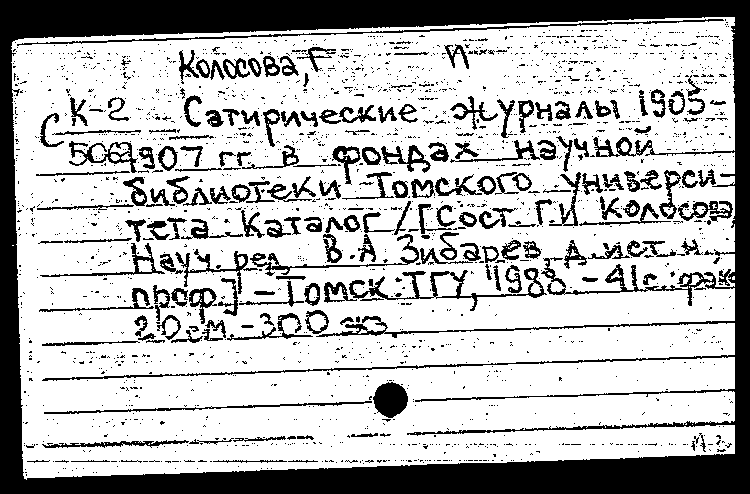 Колосова, Г П
К-2 Сатирические журналы 1905-
С 5069 1907 гг. в фондах научной
библиотеки Томского универси-
тета: Каталог / [Сост. Г.И Колосова,
Науч. ред. В.А. Зибарев, д. ист. н.,
проф.] - Томск: ТГУ, 1988. - 41 с.: факс
20 см. - 300 экз.